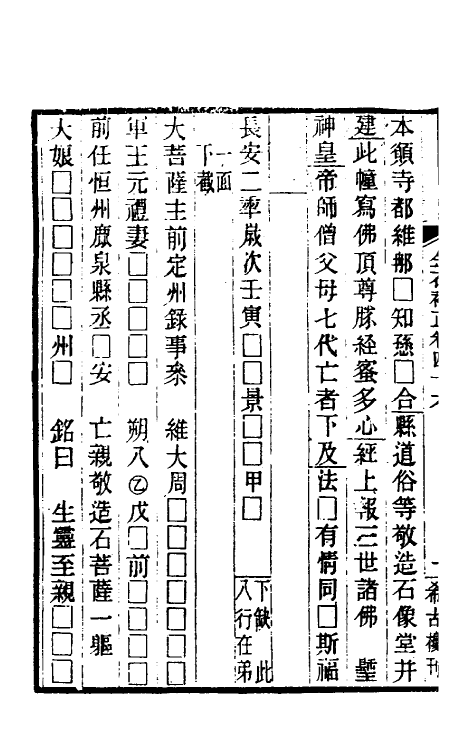 本願寺都維那□知㥽□合縣道俗等敬造石像堂并
建此幢寫佛頂尊勝經蜜多心經上報三世諸佛 聖
神皇帝師僧父母七代亡者下及法□有情同□斯福
長安二年歲次壬寅□□景□□甲□ 下缺此
八行在弟
一面
下截
大菩薩主前定州錄事叅 維大周□□□□□□□
軍王元禮妻□□□□□ 朔八㋥戊□前□□□□
前任恒州鹿泉縣丞□安 亡親敬造石菩薩一軀
大娘□□□□□□州□ 銘曰 生靈至親□□□
金石補正卷四十六
一 希古樓刊